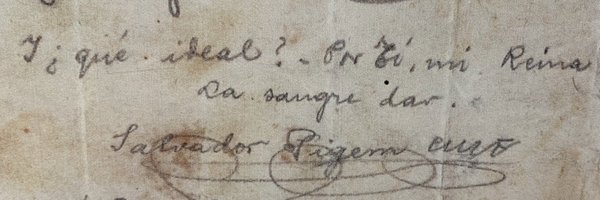 Y ¿qué ideal? - Por Tí, mi Reina
La sangre dar.
Salvador Pigem CMF